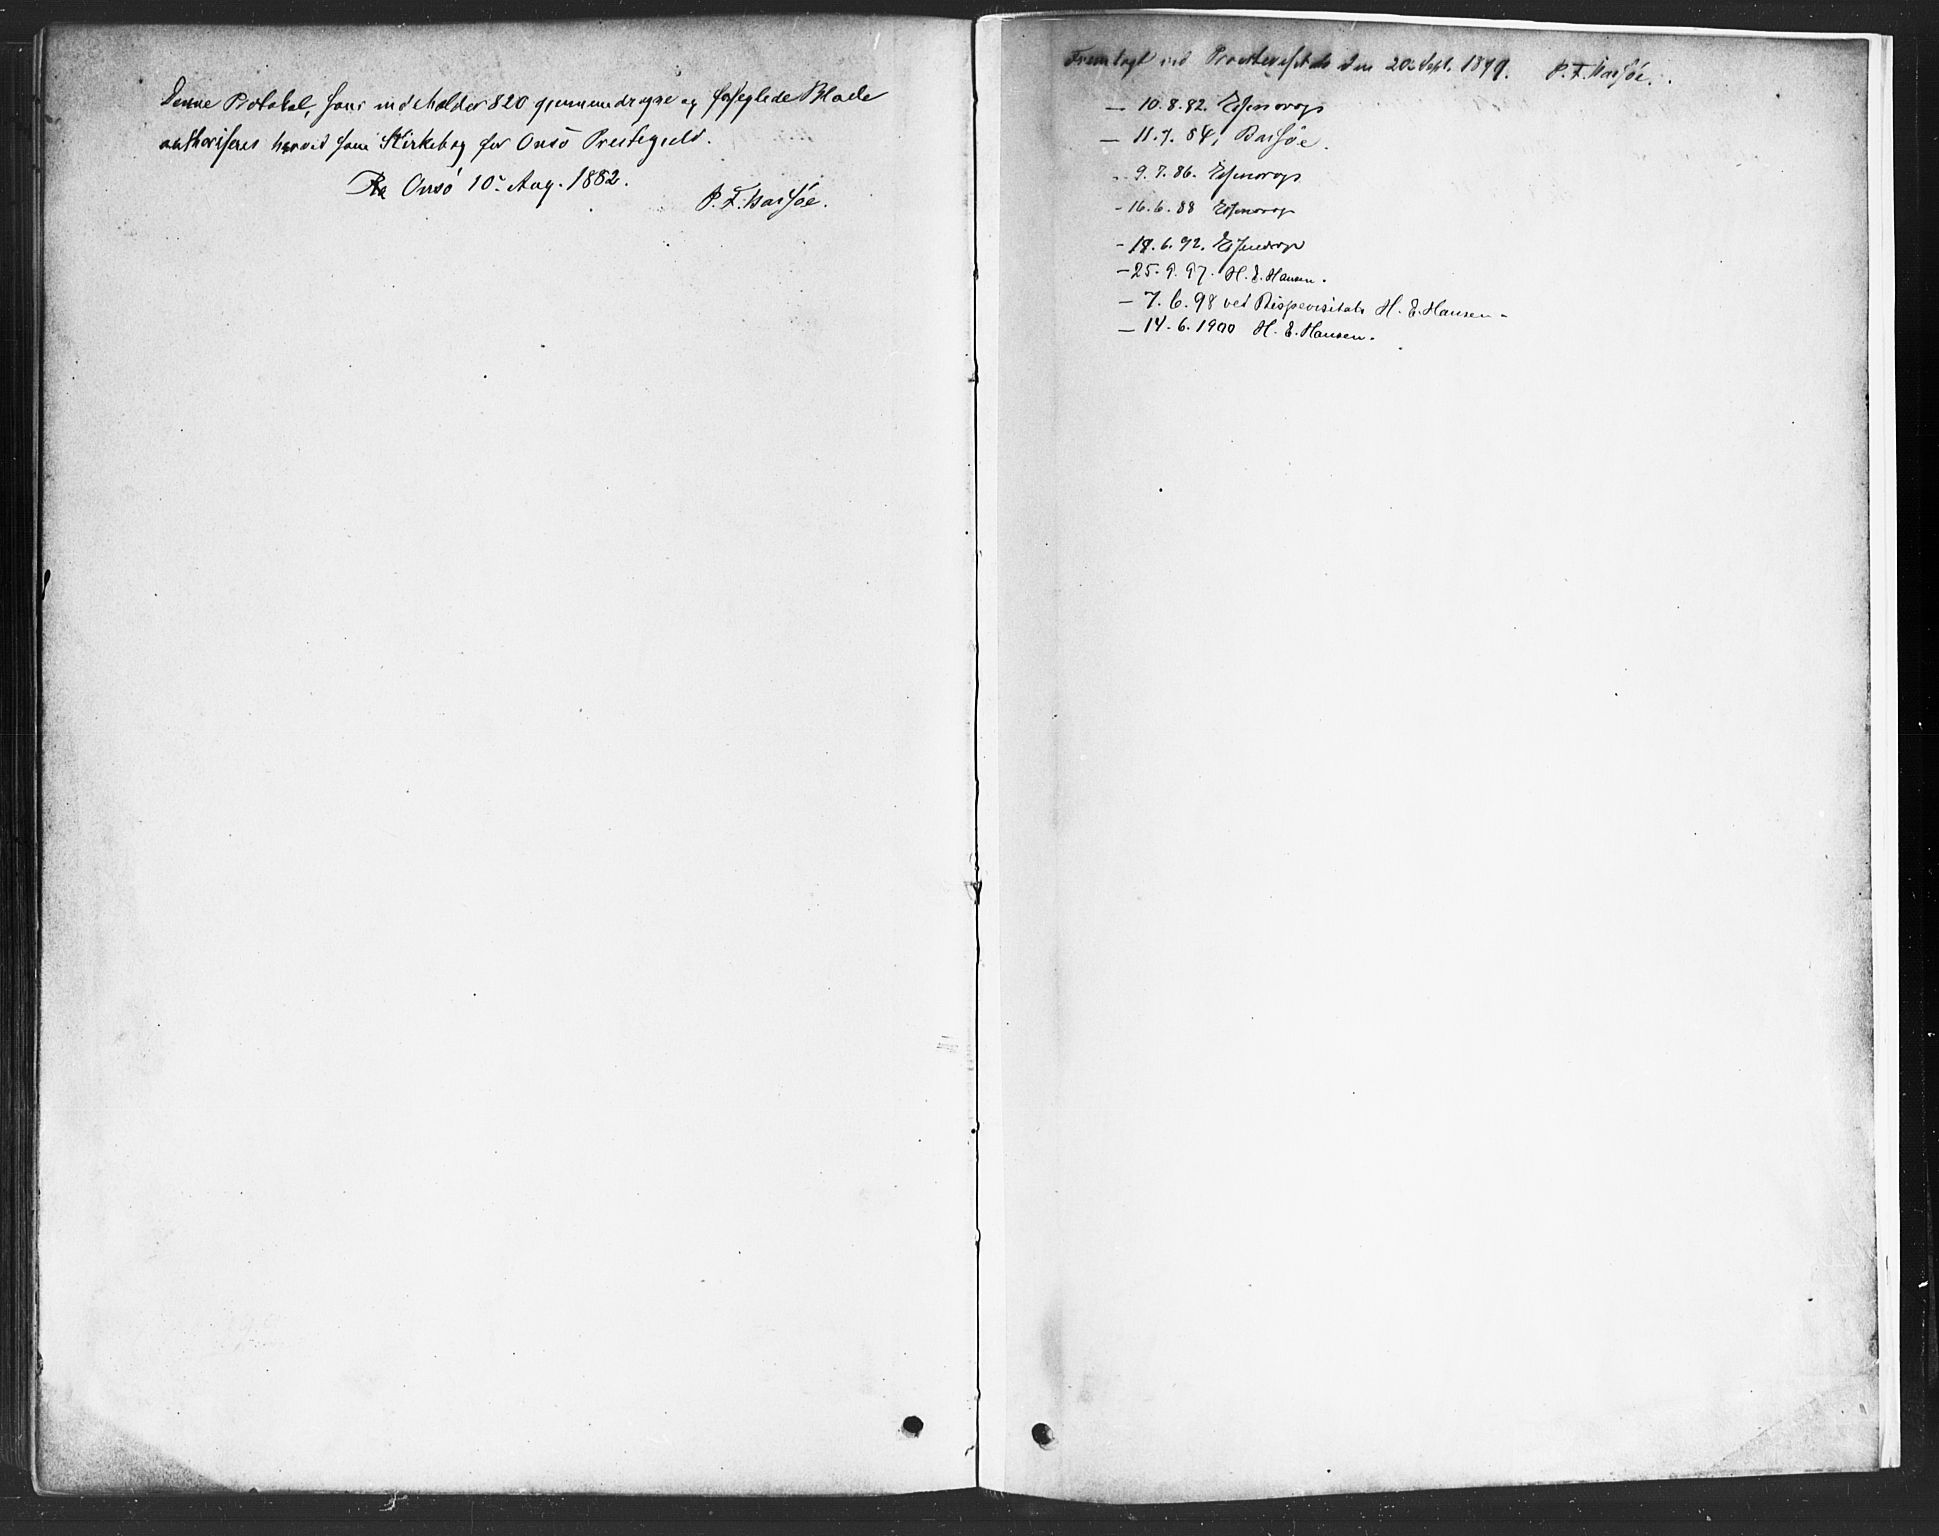 Denne Protokol, som indeholder 820 gjennemdragne og forseglede Blade
authoriseres herved som Kirkebog for Onsö Prestegield.
Onsö 10. Aug. 1882.
P. F. Bassøe.
Fremlagt ved Provstevisitats den 20. Sept. 1879. P. F. Bassøe.
— 10.8.82.
— 11.7.84, Bassøe.
9.7.86.
- 16.6.88
- 18.6.92.
- 25.9.97. H. E. Hansen.
— 7.6.98 ved Bispevisitats H. E. Hansen.
— 14.6.1900 H. E. Hansen.